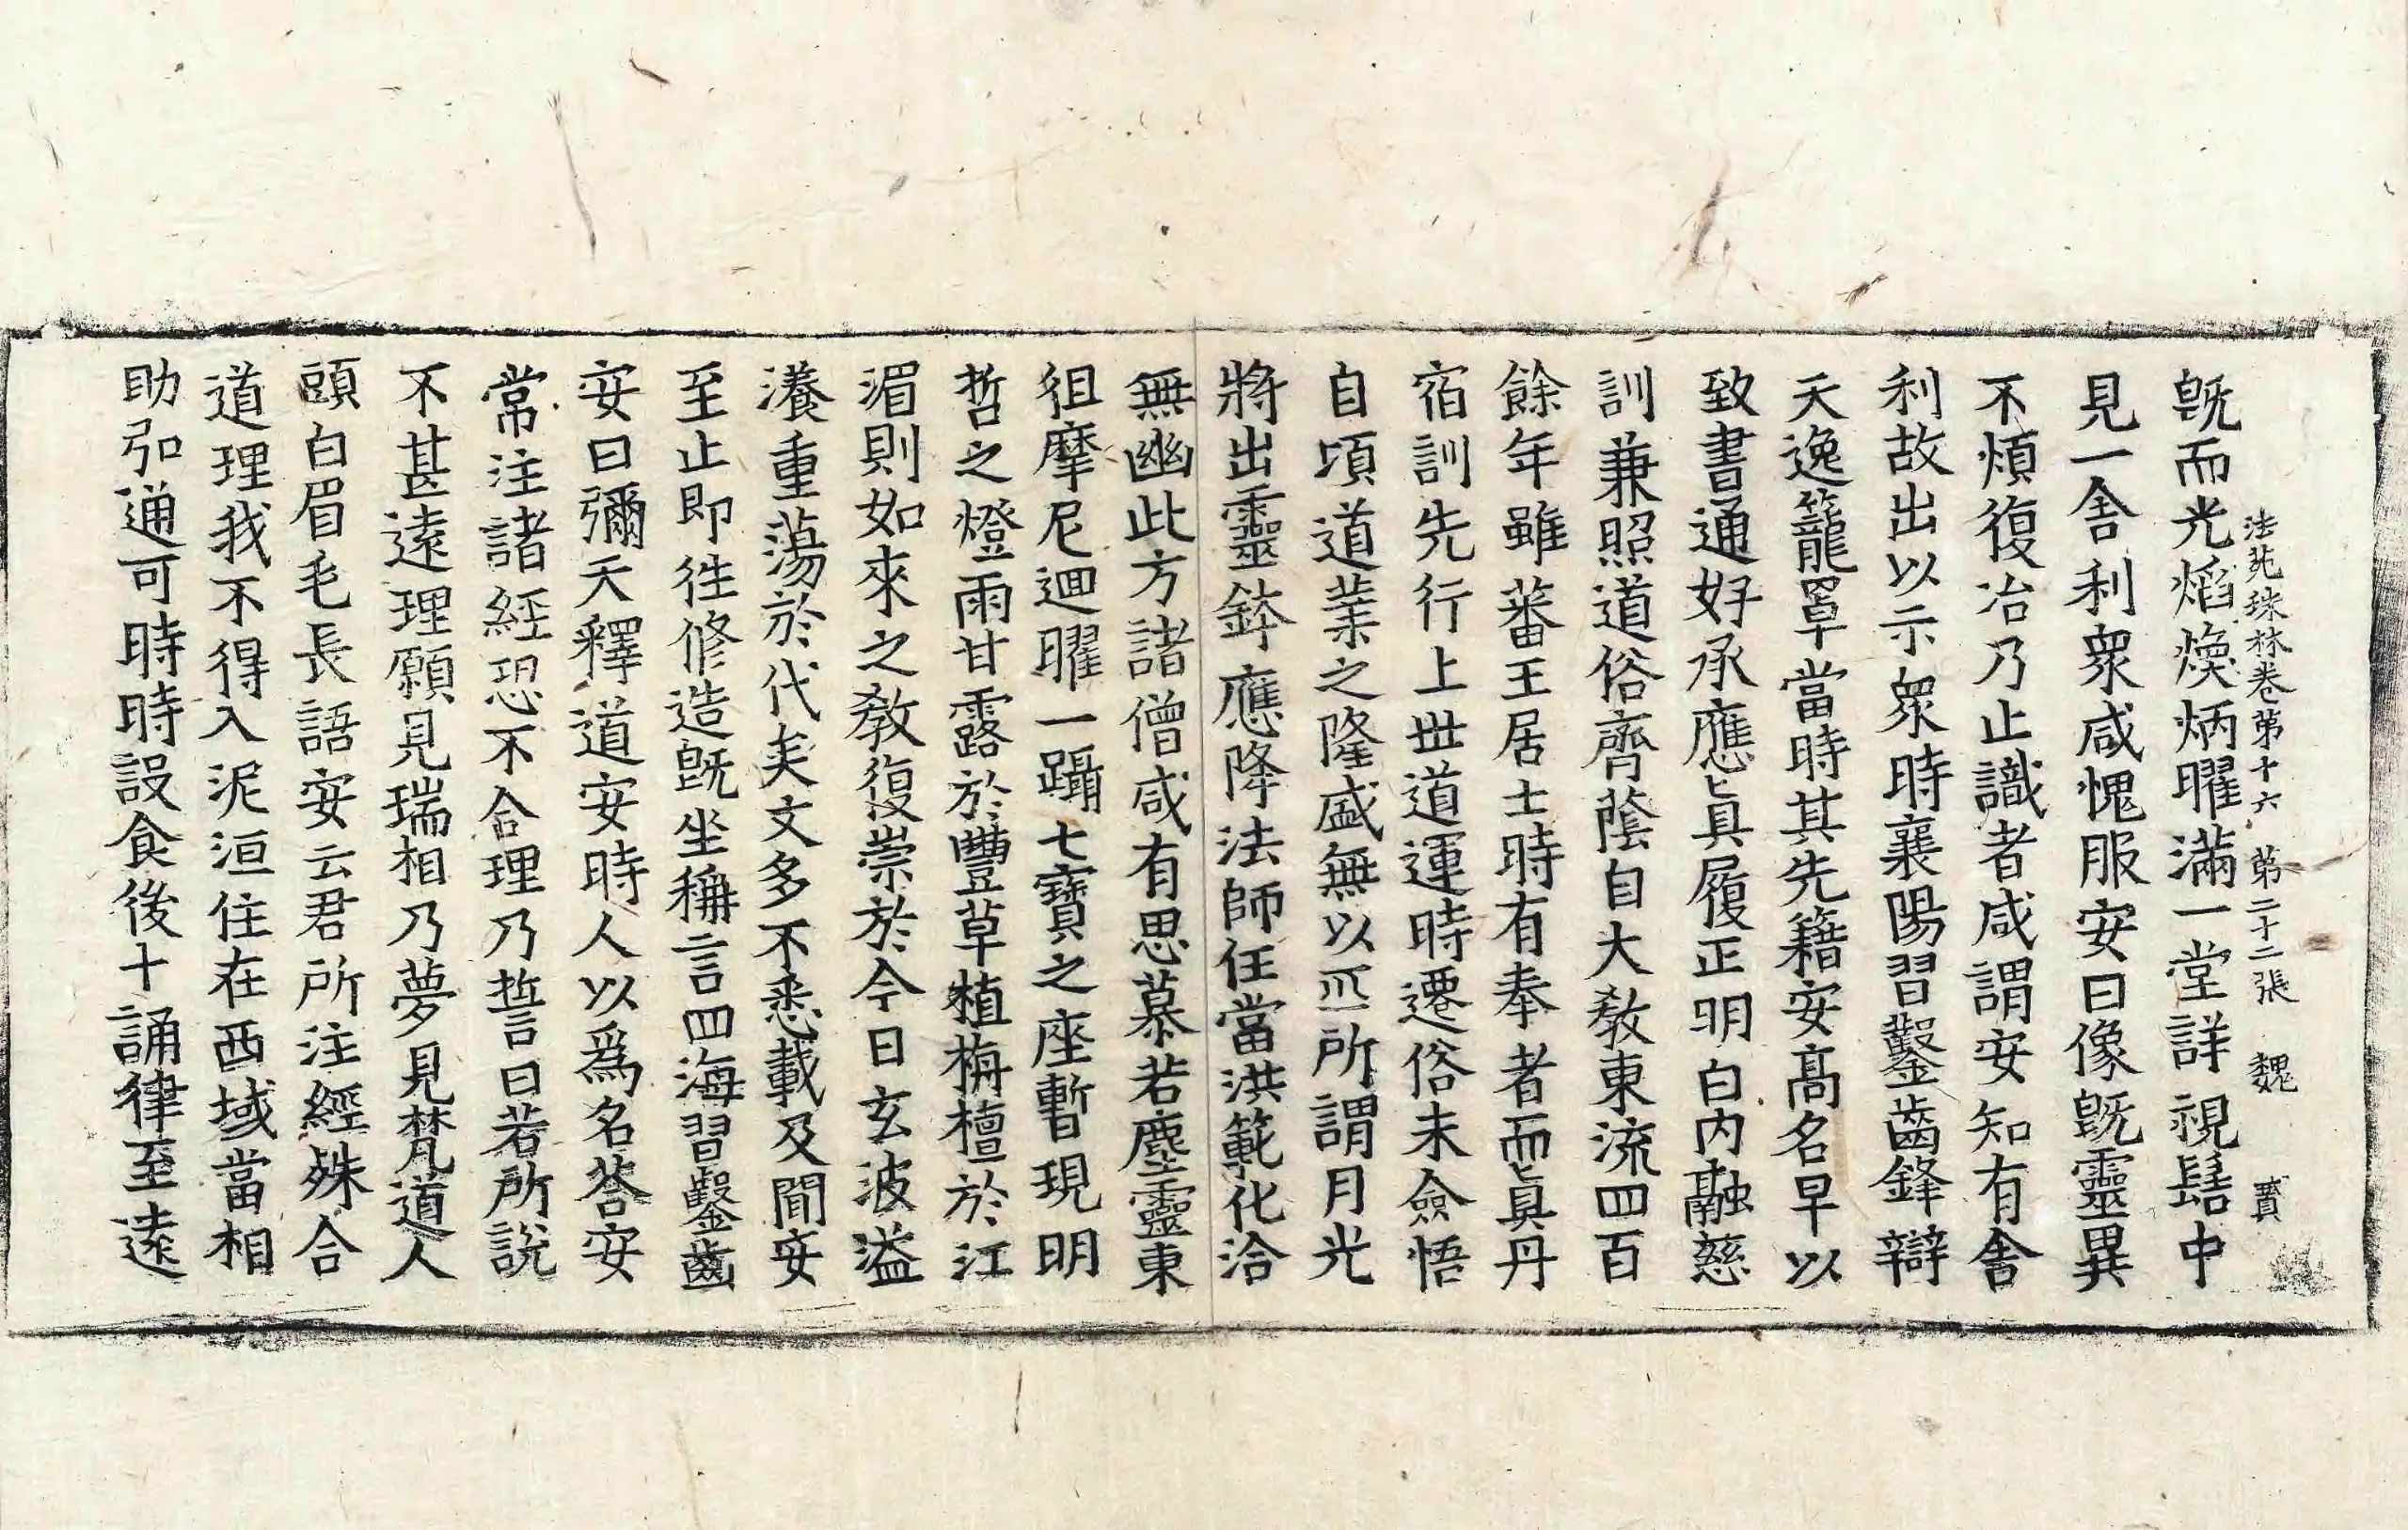 法苑珠林卷第十六 第二十二張 魏
既而光焰煥炳曜滿一堂詳視髻中
見一舍利衆咸愧服安曰像既靈異
不煩復冶乃止識者咸謂安知有舍
利故出以示衆時襄陽習鑿齒鋒辯
天逸籠罩當時其先籍安高名早以
致書通好承應眞履正明白內融慈
訓兼照道俗齊蔭自大教東流四百
餘年雖蕃王居士時有奉者而眞丹
宿訓先行上世道運時遷俗未僉悟
自頃道業之隆盛無以匹所謂月光
將出靈鉢應降法師任當洪範化洽
無幽此方諸僧咸有思慕若塵靈東
徂摩尼迴曜一躡七寶之座暫現明
哲之燈雨甘露於豐草植栴檀於江
湄則如來之教復崇於今日玄波溢
瀁重蕩於代矣文多不悉載及聞安
至止即往修造既坐稱言四海習鑿齒
安曰彌天釋道安時人以爲名荅安
常注諸經恐不合理乃誓曰若所說
不甚遠理願見瑞相乃夢見梵道人
頭白眉毛長語安云君所注經殊合
道理我不得入泥洹住在西域當相
助弘通可時時設食後十誦律至遠